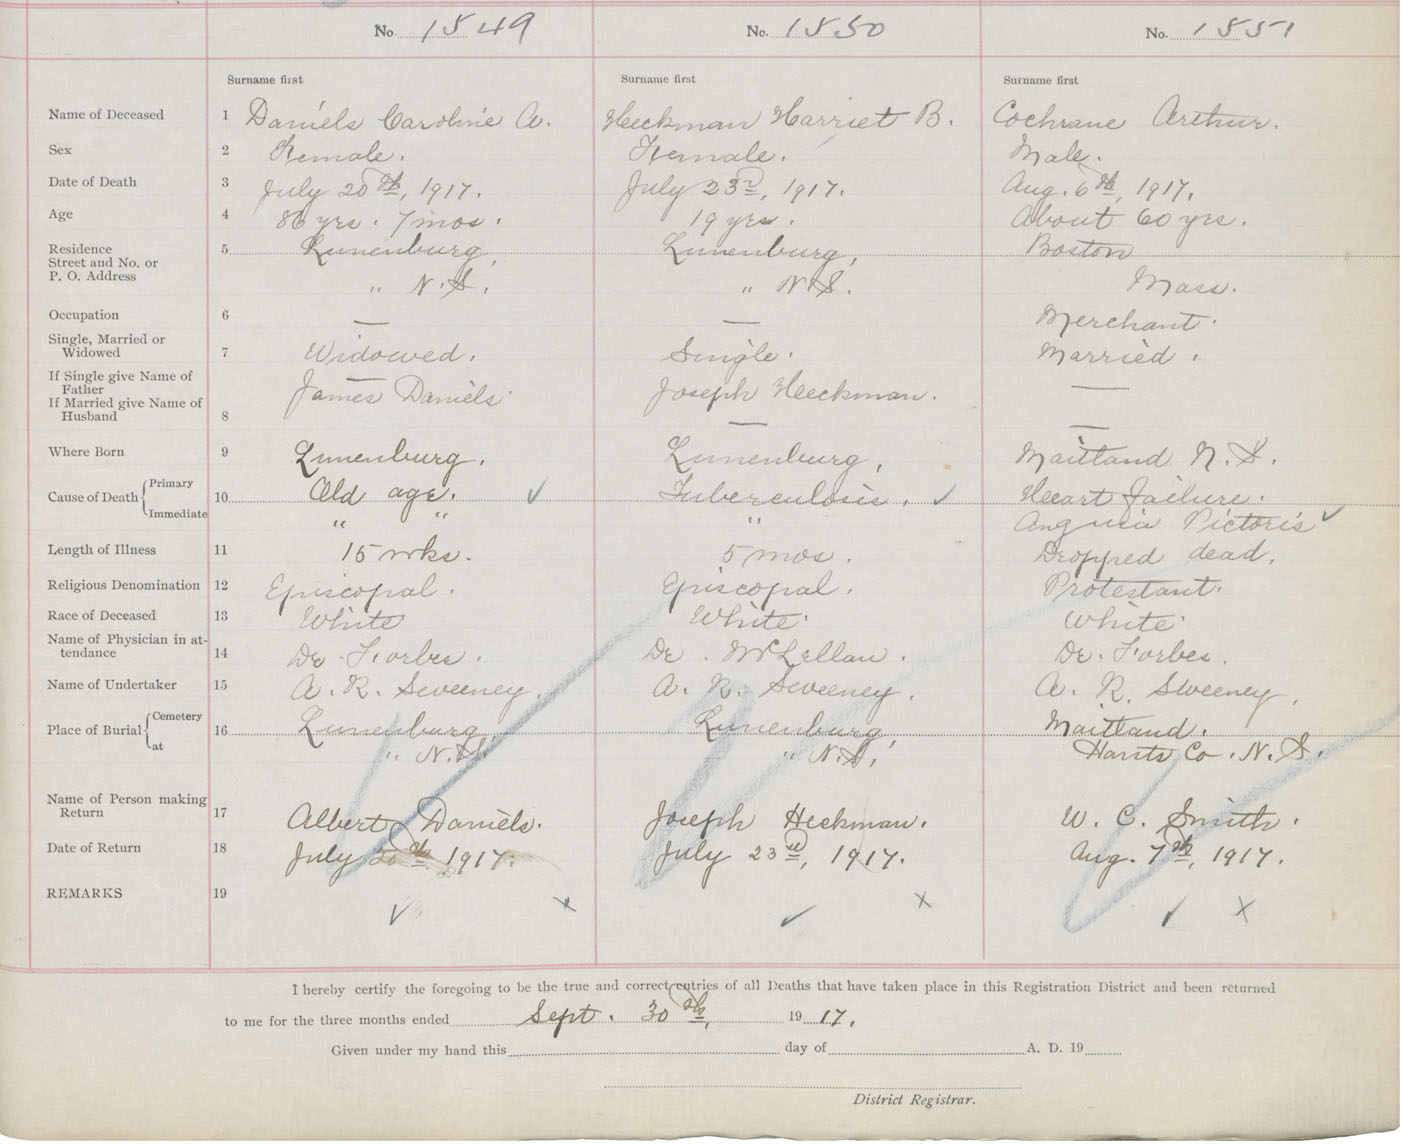 No 1549 No. 1550 No. 1551
Surname first Surname first Surname first
Name of Deceased 1 Daniels Caroline A. Heckman Harriet B. Cochrane Arthur.
Sex 2 Female. Female. Male.
Date of Death 3 July 20th, 1917. July 23rd, 1917. Aug. 6th, 1917.
Age 4 86 yrs. 7 mos. 19 yrs. About 60 yrs.
Residence 5 Lunenburg, Lunenburg, Boston
Street and No. or
P. O. Address " N.S. " N.S. Mass.
Occupation 6 — — Merchant.
Single, Married or
Widowed 7 Widowed. Single. Married.
If Single give Name of
Father — Joseph Heckman. —
If Married give Name of
Husband 8 James Daniels. — —
Where Born 9 Lunenburg. Lunenburg, Maitland N.S.
Cause of Death Primary
10 Old age. ✓ Tuberculosis. ✓ Heart Failure.
Immediate " " " Anguia Pictoris ✓
Length of Illness 11 15 wks. 5 mos. Dropped dead.
Religious Denomination 12 Episcopal. Episcopal. Protestant.
Race of Deceased 13 White White. White.
Name of Physician in at-
tendance 14 Dr. Forbes. Dr. McLellan. Dr. Forbes.
Name of Undertaker 15 A. R. Sweeney. A. R. Sweeney. A. R. Sweeney.
Place of Burial Cemetery
16 Lunenburg, Lunenburg, Maitland.
at " N.S. " N.S. Hants Co. N.S.
Name of Person making
Return 17 Albert Daniels. Joseph Heckman. W. C. Smith.
Date of Return 18 July 20th 1917. July 23rd, 1917. Aug. 7th, 1917.
REMARKS 19
✓ x ✓ x ✓ x
I hereby certify the foregoing to be the true and correct entries of all Deaths that have taken place in this Registration District and been returned
to me for the three months ended Sept. 30th, 19 17.
Given under my hand this day of A. D. 19
District Registrar.